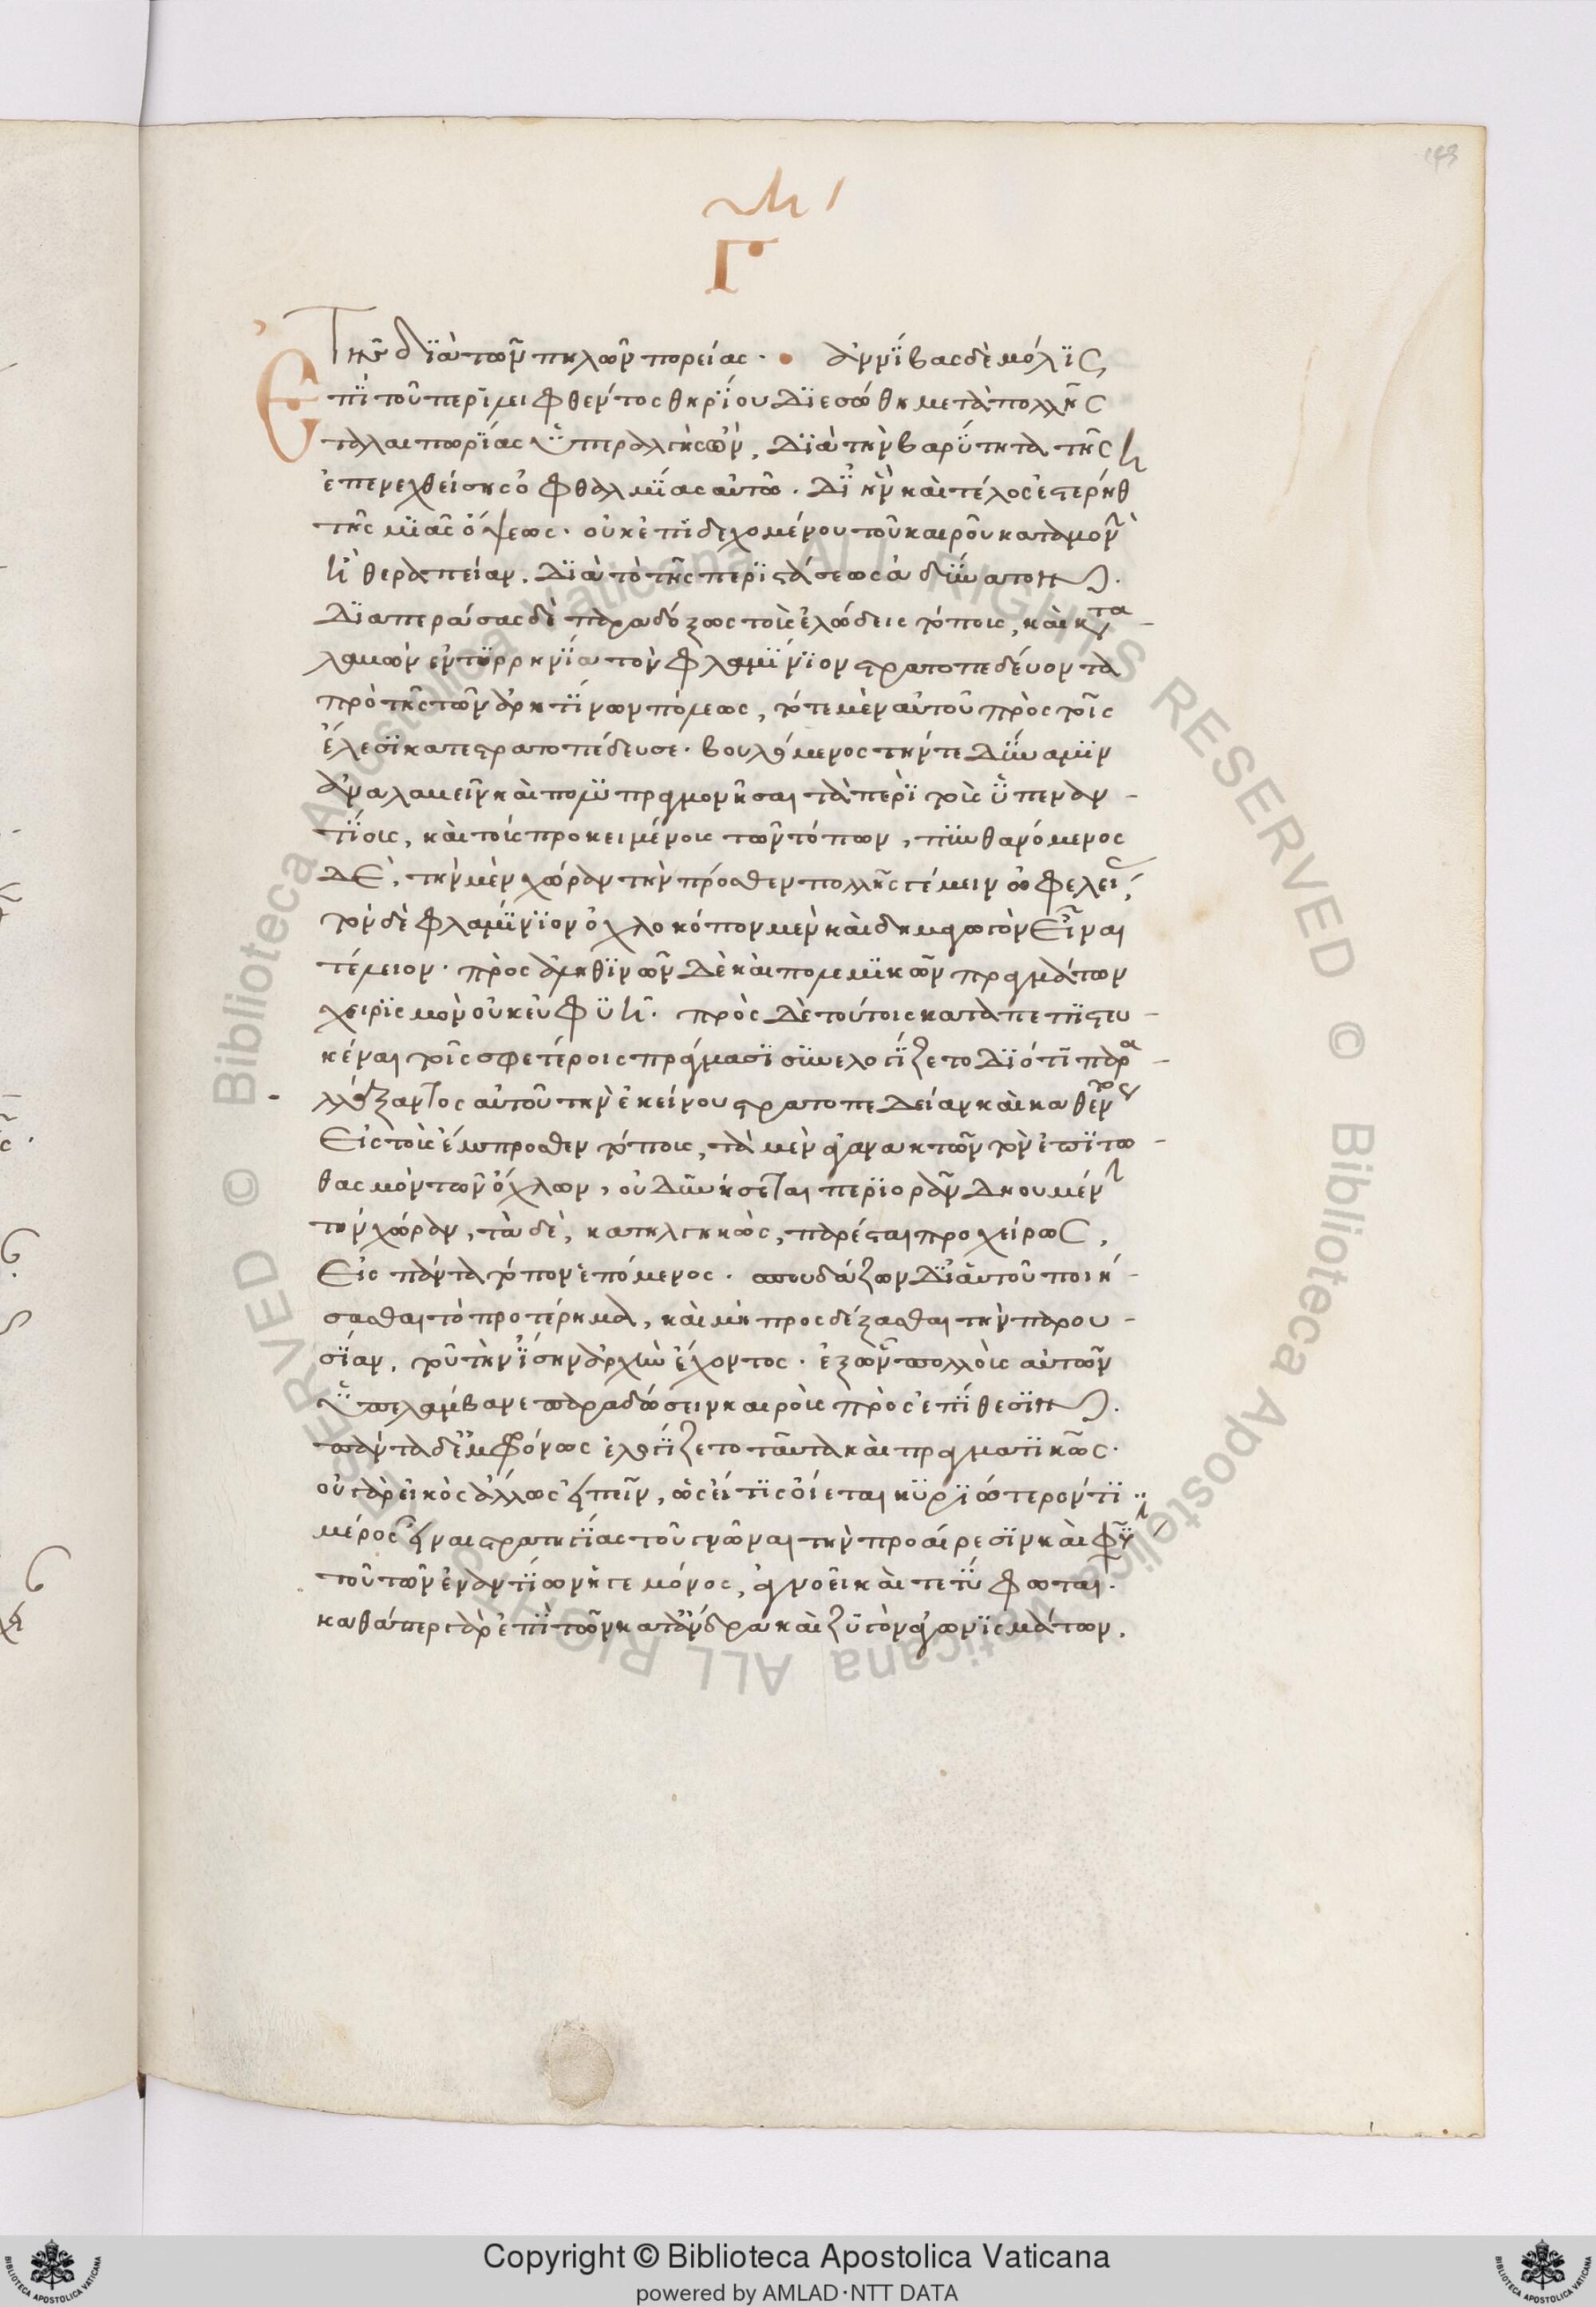 Γ
Τῆς διὰ τῶν πηλῶν πορείας· ἀννίβας δὲ μόλις
ἐπὶ τοῦ περιλειφθέντος θηρίου διεσώθη μετὰ πολλῆς
ταλαιπωρίας ὑπεραλγὴς ὢν, διὰ τὴν βαρύτητα τῆς
ἐπενεχθείσης ὀφθαλμίας αὐτῶ. δι᾽ ἣν καὶ τέλος ἐστερήθη
τῆς μιᾶς ὄψεως· οὐκ ἐπιδεχομένου τοῦ καιροῦ καταμονὴν
ἢ θεραπείαν. διὰ τὸ τῆς περιστάσεως ἀδύνατον.
Διαπεράσας δὲ παραδόξως τοὺς ἑλώδεις τόπους, καὶ κατα-
λαμὼν ἐν τυρρηνία τὸν φλαμίνιον στρατοπεδεύοντα
πρὸ τῆς τῶν ἀρητίνων πόλεως, τότε μὲν αὐτοῦ πρὸς τοῖς
ἕλεσι κατεστρατοπέδευσε· βουλόμενος τήν τε δύναμιν
ἀναλαμεῖν καὶ πολυπραγμονῆσαι τὰ περὶ τοὺς ὑπεναν-
τίους, καὶ τοὺς προκειμένους τῶν τόπων, πυνθανόμενος
δὲ, τὴν μὲν χώραν τὴν πρόσθεν πολλῆς γέμειν ὠφελείας,
τὸν δὲ φλαμίνιον ὀχλοκόπον μὲν καὶ δημαγωγὸν εἶναι
τέλειον· πρὸς ἀληθινῶν δὲ καὶ πολεμικῶν πραγμάτων
χειρισμὸν οὐκ εὐφυῆ· πρὸς δὲ τούτοις καταπεπιστευ-
κέναι τοῖς σφετέροις πράγμασι συνελογίζετο διότι παρα-
λλάξαντος αὐτοῦ τὴν ἐκείνου στρατοπεδείαν καὶ καθέντος
εἰς τοὺς ἔμπροσθεν τόπους, τὰ μὲν ἀγανακτῶν τὸν ἐπιτω-
θασμὸν τῶν ὄχλων, οὐ δυνήσεται περιορᾶν δηουμένην
τὴν χώραν, τὰ δὲ, κατηλγηκὼς, παρέσται προχείρως,
εἰς πάντα τόπον ἑπόμενος· σπουδάζων δι᾽ αὑτοῦ ποιή-
σασθαι τὸ προτέρημα, καὶ μὴ προσδέξασθαι τὴν παρου-
σίαν, τοῦ τὴν ἴσην ἀρχὴν ἔχοντος· ἐξ ὧν πολλοὺς αὐτῶν
ὑπελάμβανε παραδώσειν καιροὺς πρὸς ἐπίθεσιν.
πάντα δ᾽ ἐμφρόνως ἐλογίζετο ταῦτα καὶ πραγματικῶς·
οὐ γὰρ εἰκὸς ἄλλως εἰπεῖν, ὡς εἴ τις οἴεται κυριώτερόν τι
μέρος εἶναι στρατηγίας τοῦ γνῶναι τὴν προαίρεσιν καὶ φύσιν
τοῦ τῶν ἐναντίων ἡγεμόνος, ἀγνοεῖ καὶ τετύφωται.
καθάπερ γὰρ ἐπὶ τῶν κατ᾽ ἄνδρα καὶ ζυγὸν ἀγωνισμάτων.
Copyright © Biblioteca Apostolica Vaticana
powered by AMLAD·NTT DATA